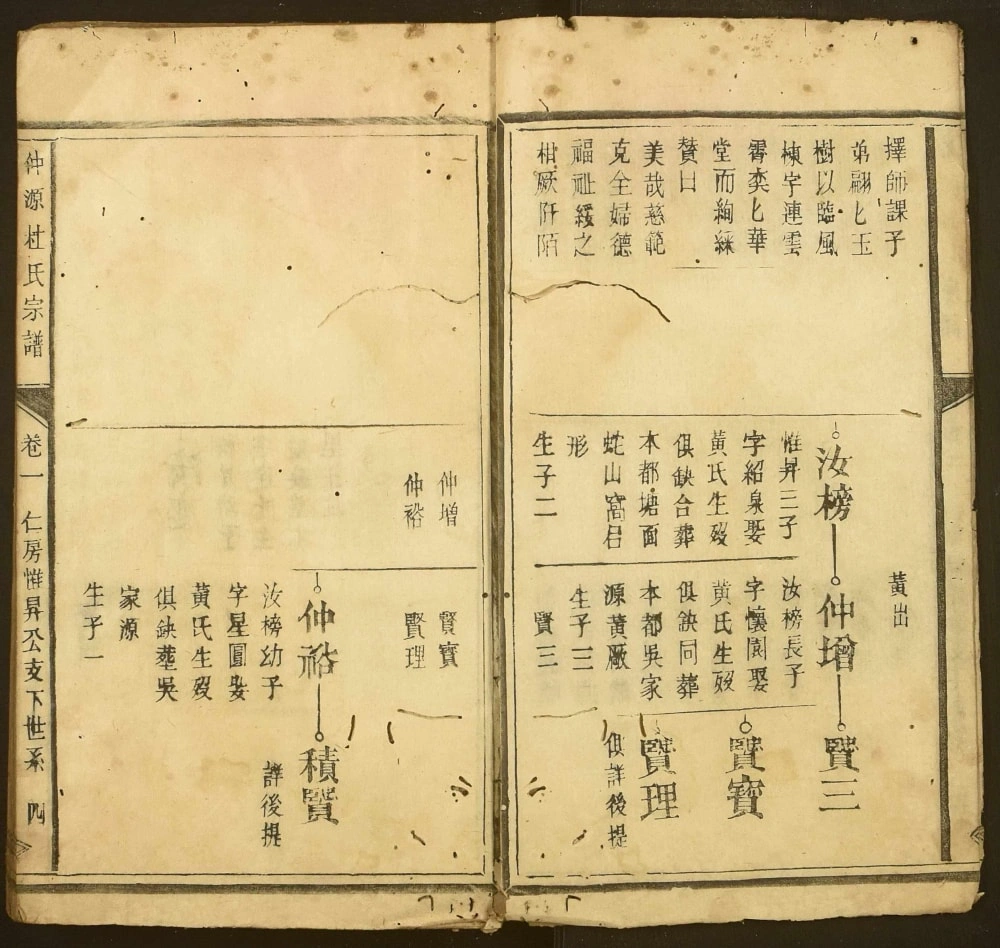 擇師課子
弟翩匕玉
樹以臨風
棟宇連雲
霄奕匕華
堂而絢綵
贊曰
美哉慈範
克全婦德
福祉綏之
柑厥阡陌
黃出
汝榜
惟昇三子
字紹泉娶
黃氏生歿
俱缺合葬
本都塘面
蛇山窩呂
形
生子二
仲增
汝榜長子
字懷園娶
黃氏生歿
俱缺同葬
本都吳家
源黃厰
生子三
賢三
賢三
賢寶
賢理
俱詳後提
仲增
仲裕
賢寶
賢理
仲裕
汝榜幼子
字星圓娶
黃氏生歿
俱缺葬吳
家源
生子一
積賢
詳後提
仲源杜氏宗譜
卷一 仁房惟昇公支下世系 四